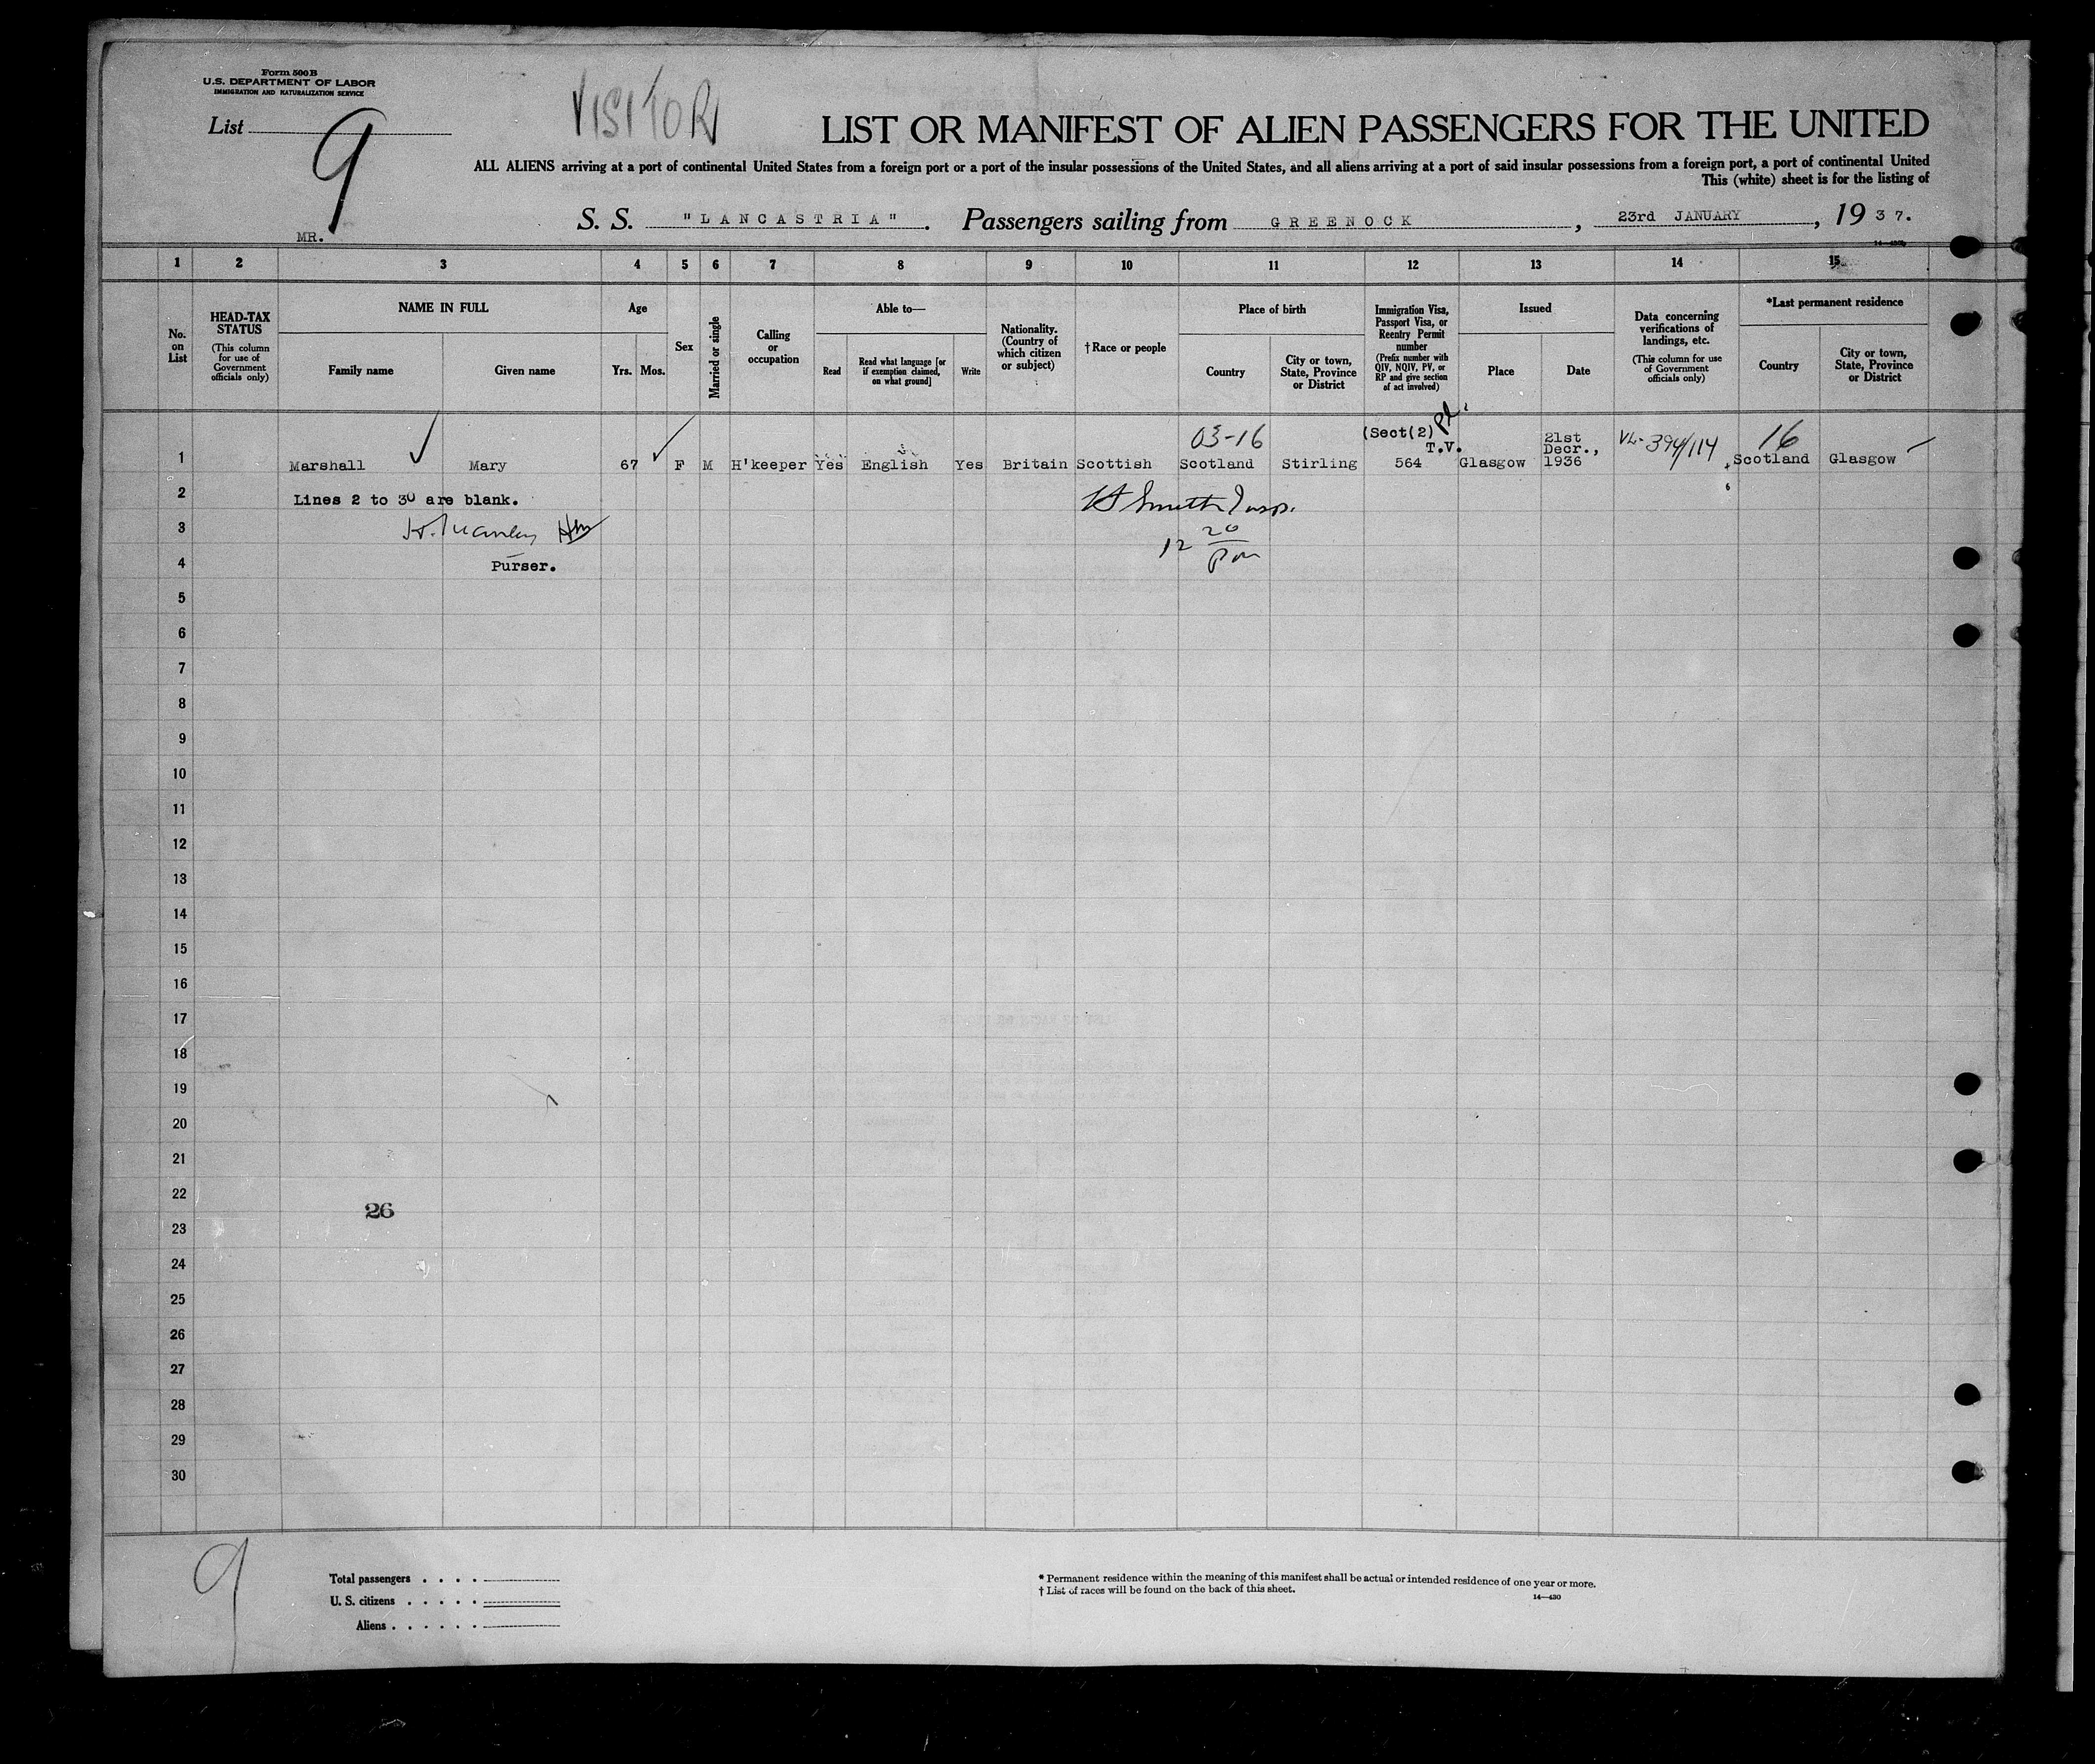 Form 500 B
U.S. DEPARTMENT OF LABOR
IMMIGRATION AND NATURALIZATION SERVICE
List 9
VISITOR
LIST OR MANIFEST OF ALIEN PASSENGERS FOR THE UNITED
ALL ALIENS arriving at a port of continental United States from a foreign port or a port of the insular possessions of the United States, and all aliens arriving at a port of said insular possessions from a foreign port, a port of continental United
This (white) sheet is for the listing of
S. S. "LANCASTRIA". Passengers sailing from GREENOCK, 23rd JANUARY, 1937.
MR.
1 2 3 4 5 6 7 8 9 10 11 12 13 14 15
No. on List
HEAD-TAX STATUS (This column for use of Government officials only)
NAME IN FULL
Family name Given name
Age
Yrs. Mos.
Sex
Married or single
Calling or occupation
Able to—
Read Read what language [or if exemption claimed, on what ground] Write
Nationality. (Country of which citizen or subject)
†Race or people
Place of birth
Country City or town, State, Province or District
Immigration Visa, Passport Visa, or Reentry Permit number (Prefix number with QIV, NQIV, PV, or RP and give section of act involved)
Issued
Place Date
Data concerning verifications of landings, etc. (This column for use of Government officials only)
*Last permanent residence
Country City or town, State, Province or District
03-16 (Sect(2) T.V. 21st Decr., 394/114 16
1 Marshall Mary 67 F M H'keeper Yes English Yes Britain Scottish Scotland Stirling 564 Glasgow 1936 Scotland Glasgow
2 Lines 2 to 30 are blank. Smith Insp.
3 12 20 pm
4 Purser.
5
6
7
8
9
10
11
12
13
14
15
16
17
18
19
20
21
22
26
23
24
25
26
27
28
29
30
9
Total passengers . . . .
U. S. citizens . . . . .
Aliens . . . . . .
* Permanent residence within the meaning of this manifest shall be actual or intended residence of one year or more.
† List of races will be found on the back of this sheet.
14—430